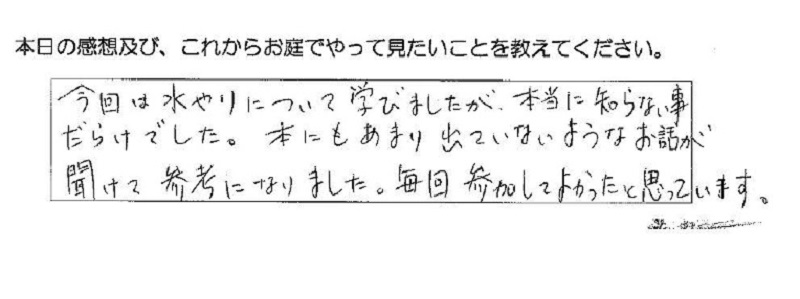 本日の感想及び、これからお庭でやって見たいことを教えてください。
今回は水やりについて学びましたが、本当に知らない事
だらけでした。本にもあまり出ていないようなお話が
聞けて参考になりました。毎回参加してよかったと思っています。